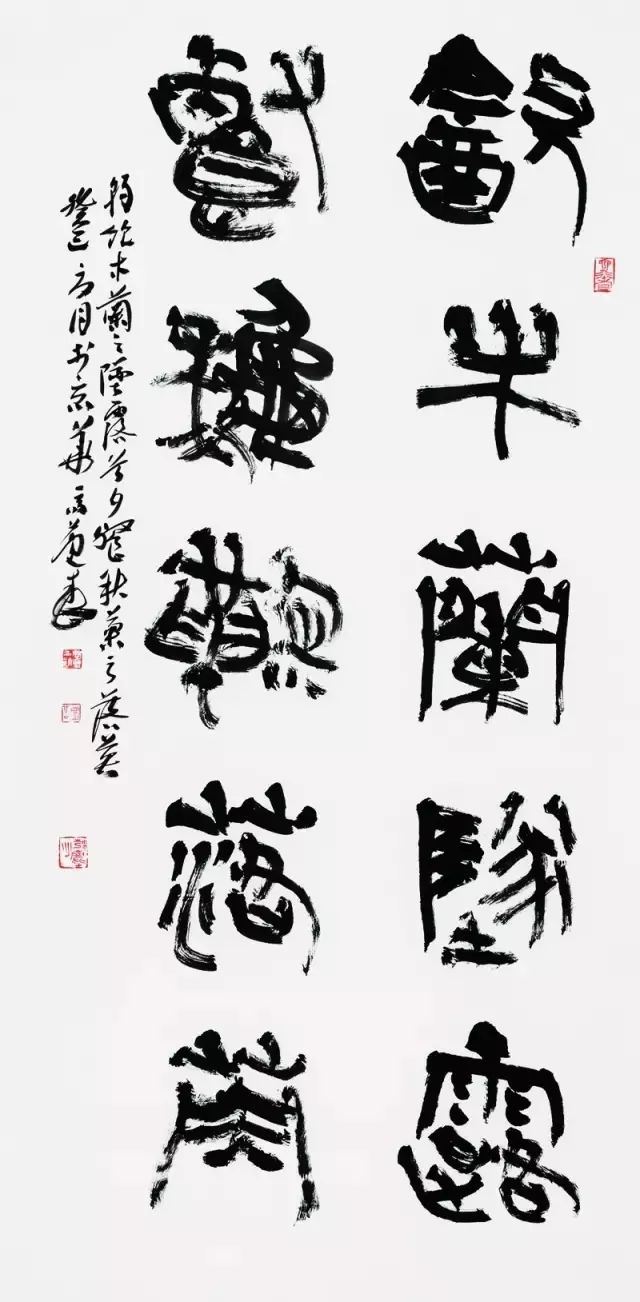 飲木蘭墜露
餐秋菊落英
朝飲木蘭之墜露兮夕餐秋菊之落英
癸巳 月於京華